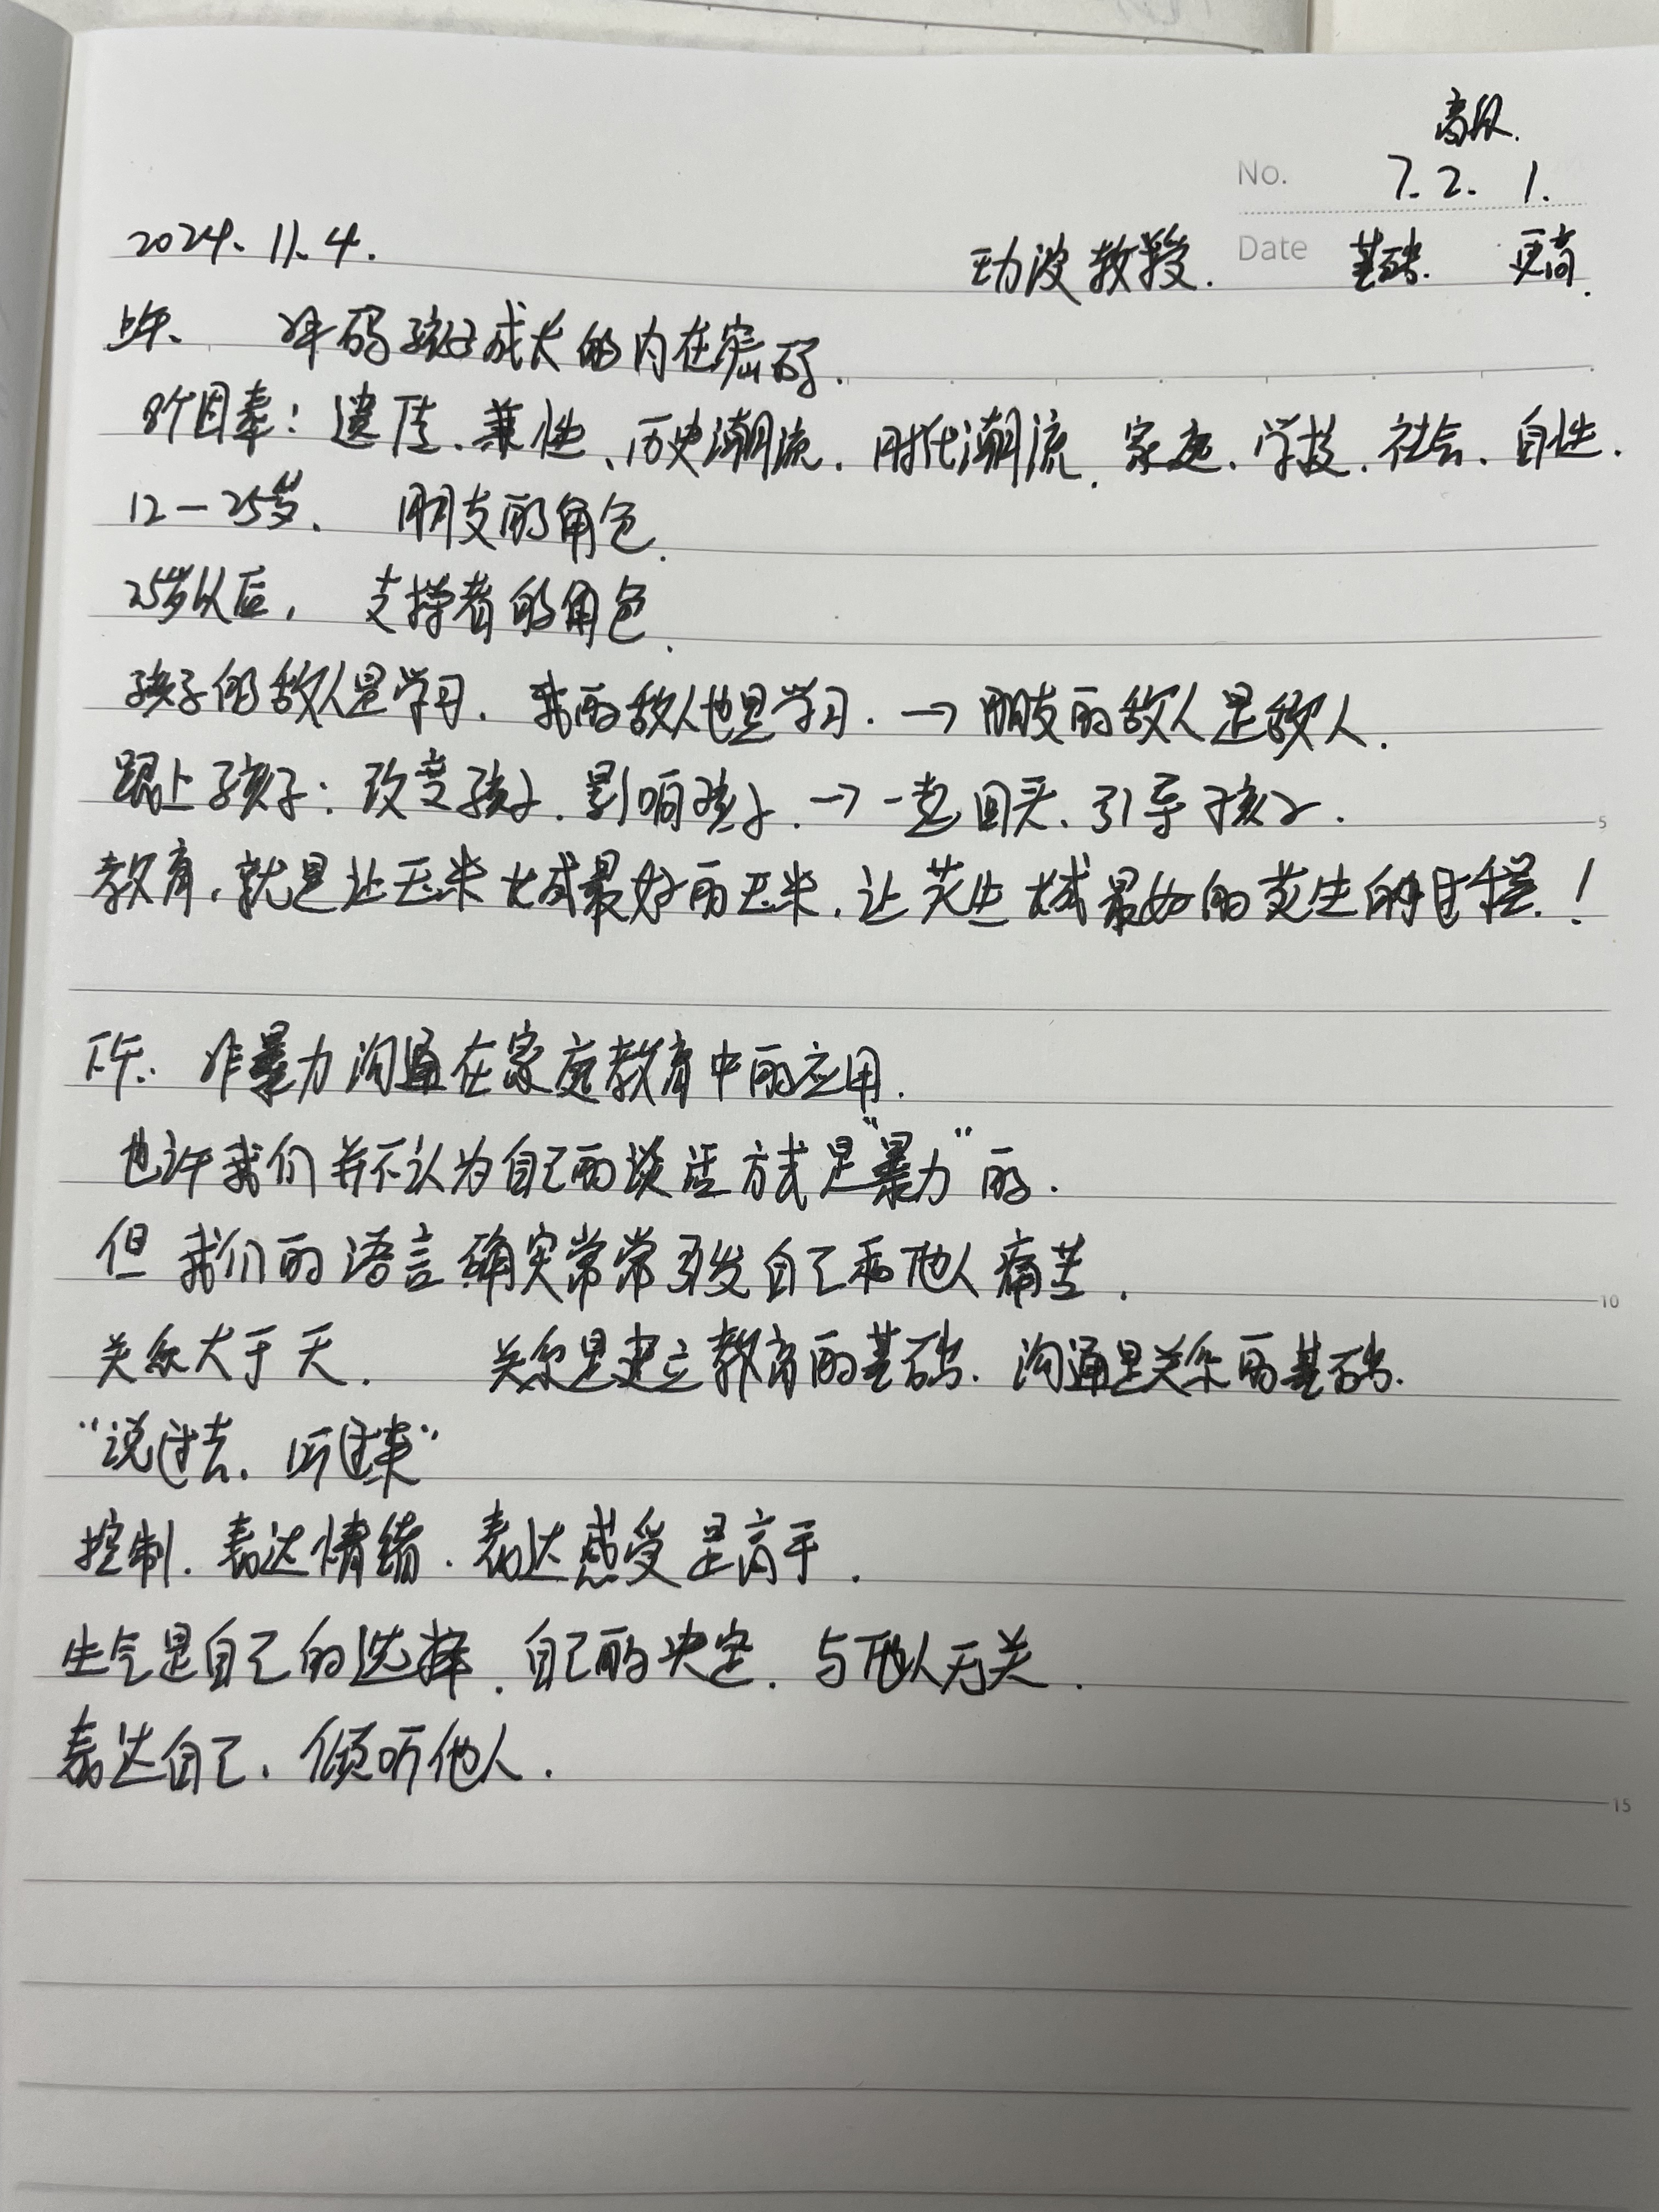 高级.
No. 7. 2. 1.
2024. 11. 4. 教授. Date 基础. 更高.
上午、 解码孩子成长的内在密码.
8个因素：遗传、秉性、历史潮流、时代潮流、家庭、学校、社会、自性.
12—25岁、 朋友的角色.
25岁以后， 支撑者的角色.
孩子的敌人是学习. 我的敌人也是学习. → 朋友的敌人是敌人.
跟上孩子：改变孩子、影响孩子. → 一起回头、引导孩子.
教育，就是让玉米长成最好的玉米，让花生长成最好的花生的过程.！
5
下午： 非暴力沟通在家庭教育中的应用.
也许我们并不认为自己的谈话方式是“暴力”的.
但我们的语言确实常常引发自己和他人痛苦.
10
关系大于天. 关系是建立教育的基础. 沟通是关系的基础.
“说过去，听过来”
控制. 表达情绪. 表达感受是高手.
生气是自己的选择、自己的决定、与他人无关.
表达自己、倾听他人.
15